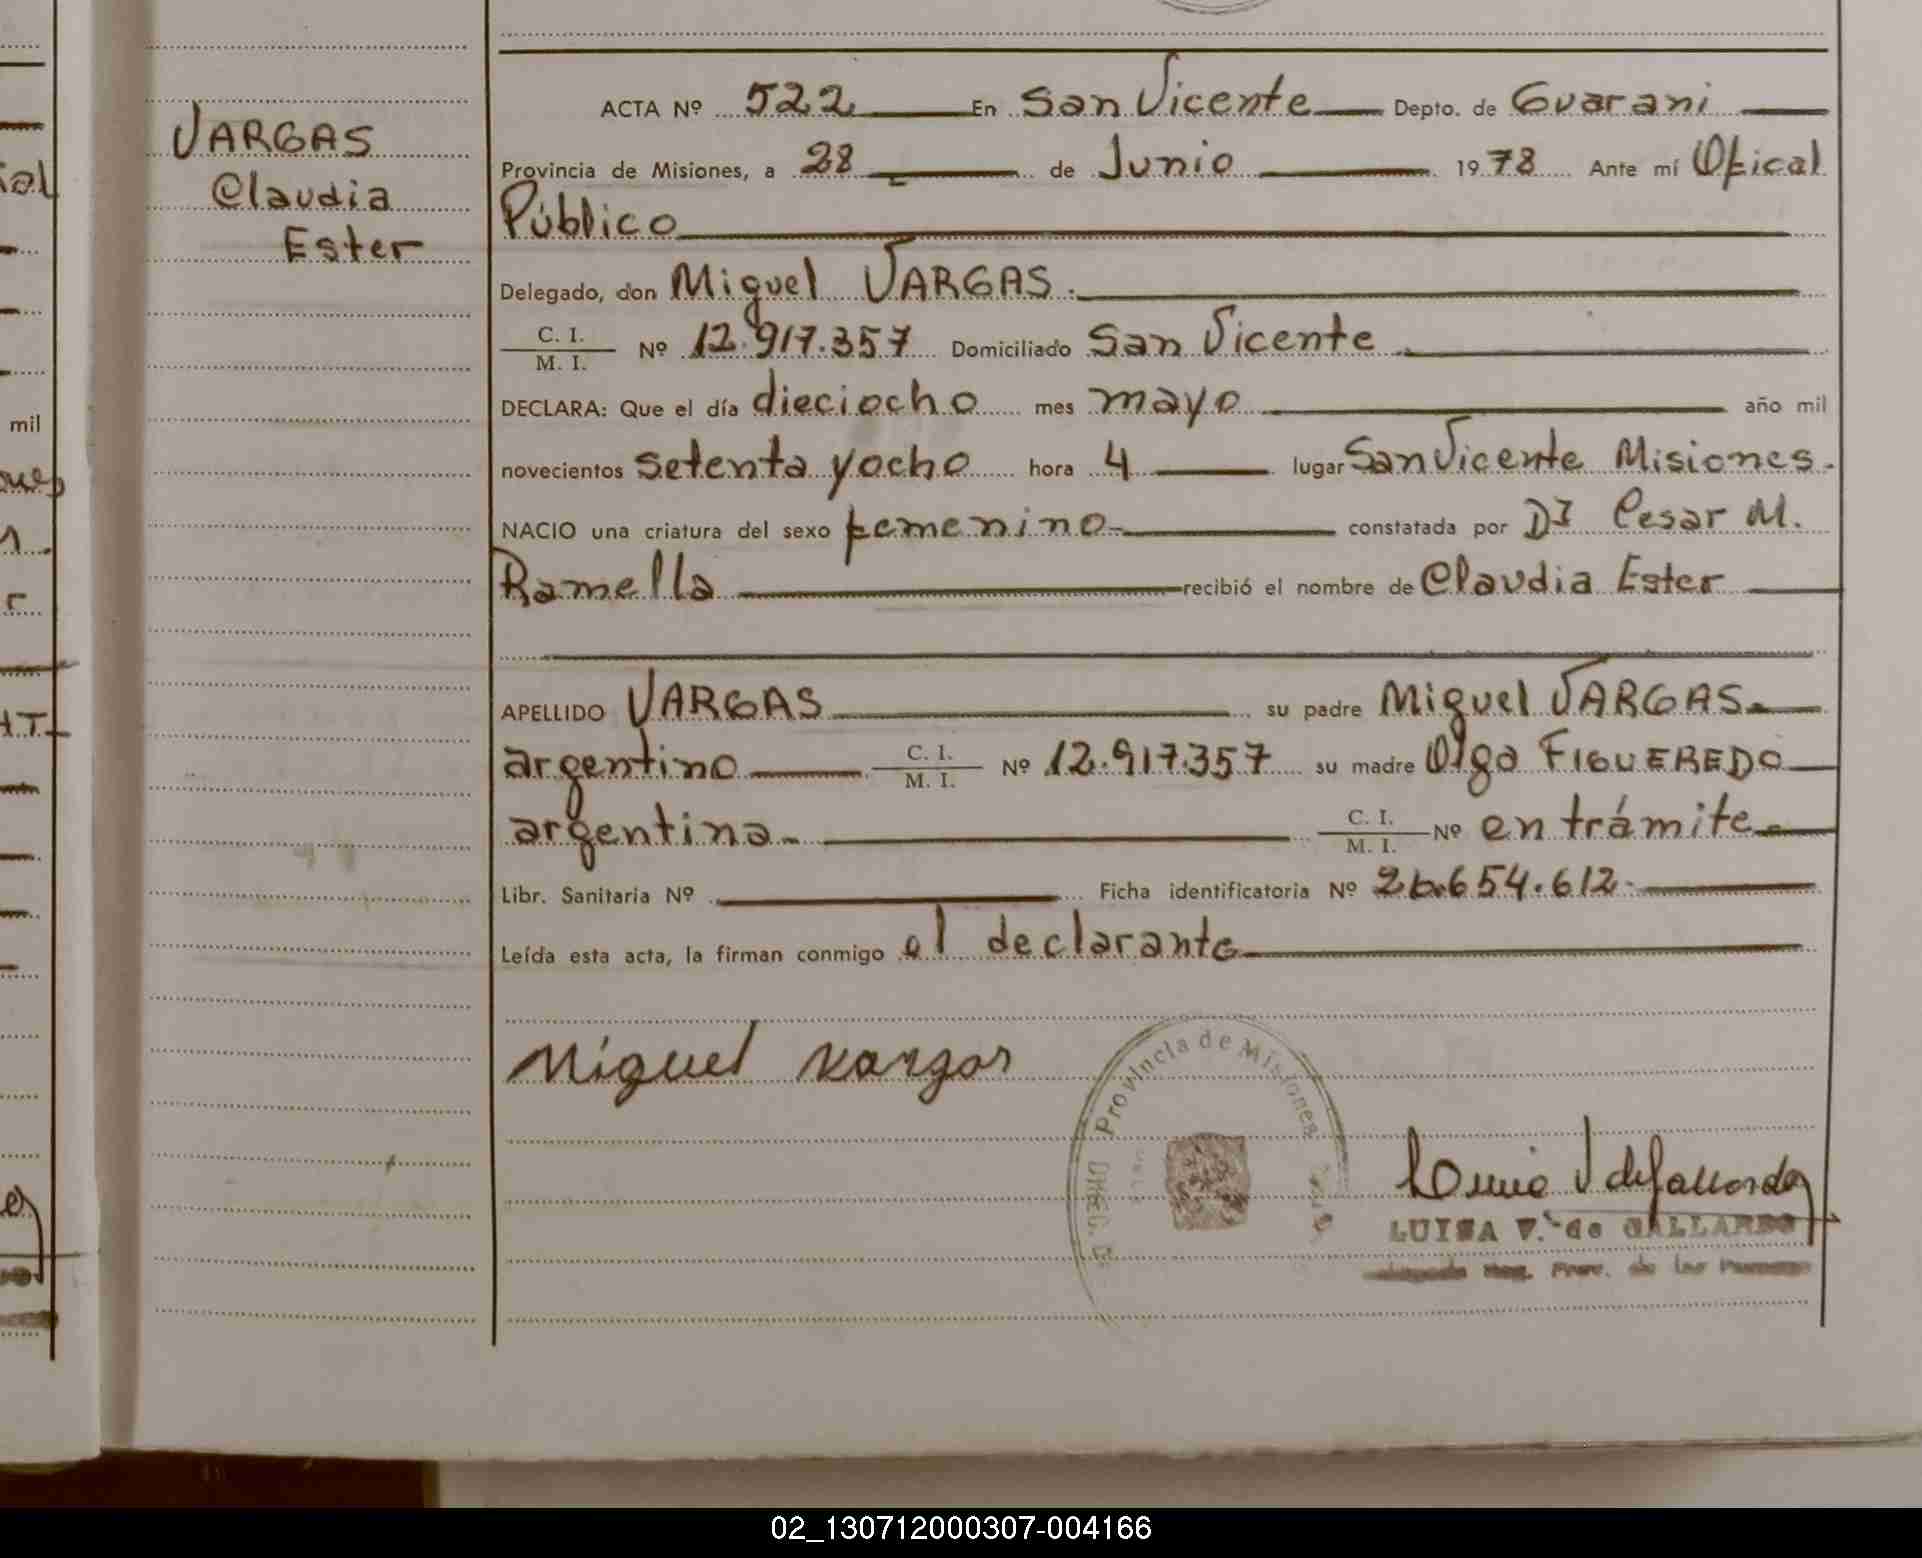 VARGAS
Claudia
Ester
ACTA Nº 522 En San Vicente Depto. de Guarani
Provincia de Misiones, a 28 de Junio 1978 Ante mí Ofical
Público
Delegado, don Miguel VARGAS.
C. I.
M. I. Nº 12.917.357 Domiciliado San Vicente
DECLARA: Que el día dieciocho mes mayo año mil
novecientos setenta y ocho hora 4 lugar San Vicente Misiones.
NACIO una criatura del sexo femenino constatada por Cesar M.
Ramella recibió el nombre de Claudia Ester
APELLIDO VARGAS su padre Miguel VARGAS
argentino C. I. M. I. Nº 12.917.357 su madre Olga FIGUEREDO
argentina C. I. M. I. Nº en trámite
Libr. Sanitaria Nº Ficha identificatoria Nº 26.654.612
Leída esta acta, la firman conmigo el declarante
Miguel Vargas
Provincia de Misiones
LUISA V. de GALLARDO
mil
02_130712000307-004166